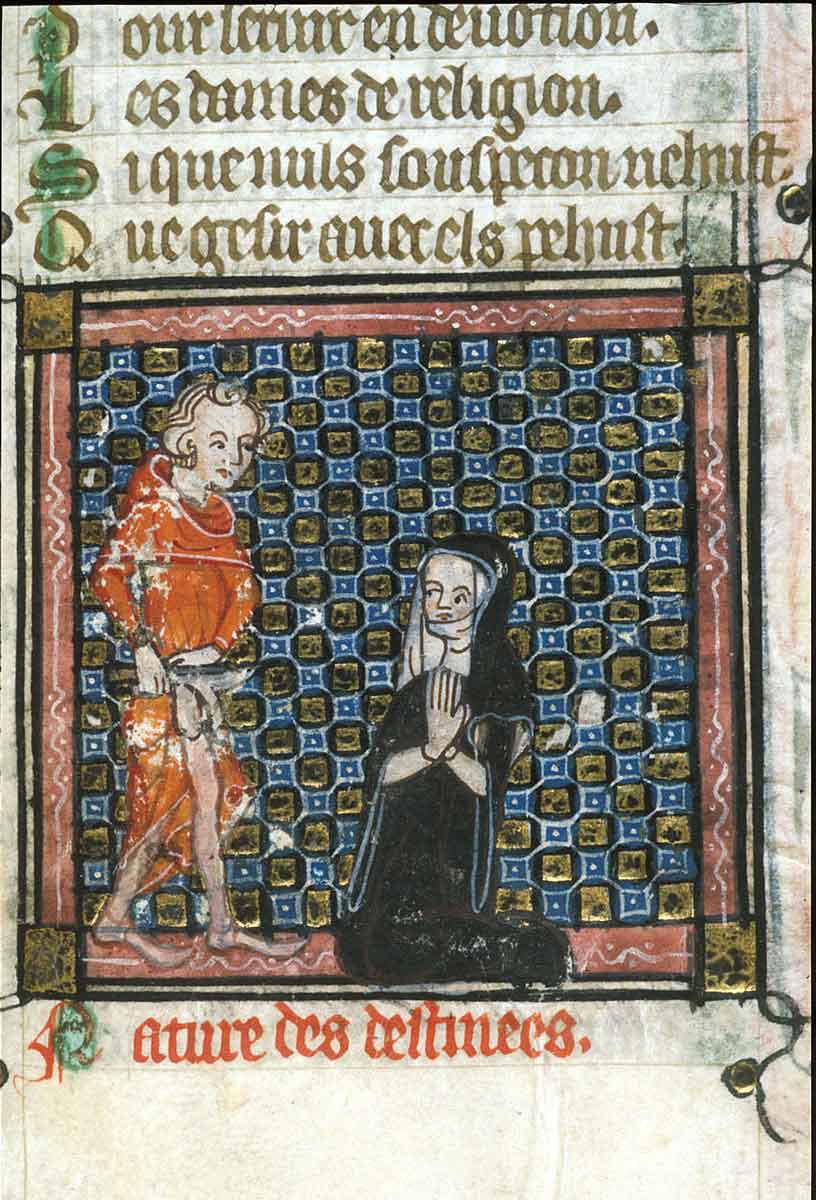 Pour seruir en deuotion.
Les dames de religion.
Si que nuls souspecon nehust.
Que gesir auecels pehust.
Nature des destinees.